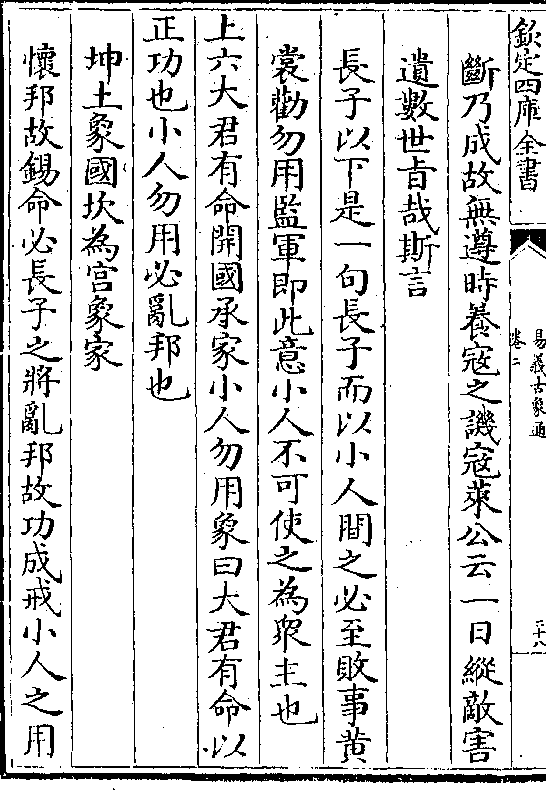 欽定四庫全書
易義古象通
卷二
二十八
斷乃成故無遵時養寇之譏寇萊公云一日縱敵害
遺數世旨哉斯言
長子以下是一句長子而以小人間之必至敗事黄
裳勸勿用監軍即此意小人不可使之為衆主也
上六大君有命開國承家小人勿用象曰大君有命以
正功也小人勿用必亂邦也
坤土象國坎為宫象家
懷邦故錫命必長子之將亂邦故功成戒小人之用